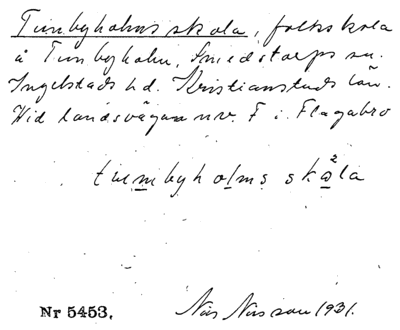 Tunbyholms skola, folkskola
å Tunbyholm, Smedstorps sn.
Ingelstads hd. Kristianstads län.
Vid landsvägen nv. F i. Flagabro
tuembyholms skola
Nr 5453. Nils Nilsson 1931.